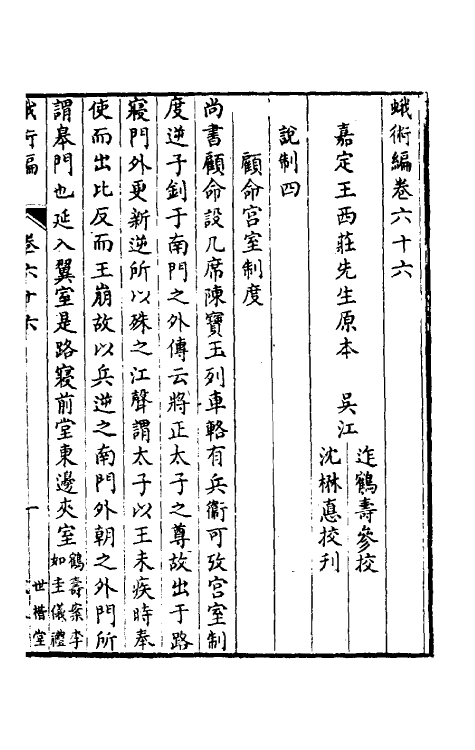 蛾術編卷六十六
嘉定王西莊先生原本　吳江
迮鶴壽參校
沈楙悳挍刊
說制四
顧命宮室制度
尚書顧命設几席陳寶玉列車輅有兵衞可攷宮室制
度逆子釗于南門之外傳云將正太子之尊故出于路
寢門外更新逆所以殊之江聲謂太子以王未疾時奉
使而出比反而王崩故以兵逆之南門外朝之外門所
謂皋門也延入翼室是路寢前堂東邊夾室
鶴壽案李
如圭儀禮
蛾術編
卷六十六
一
世楷堂